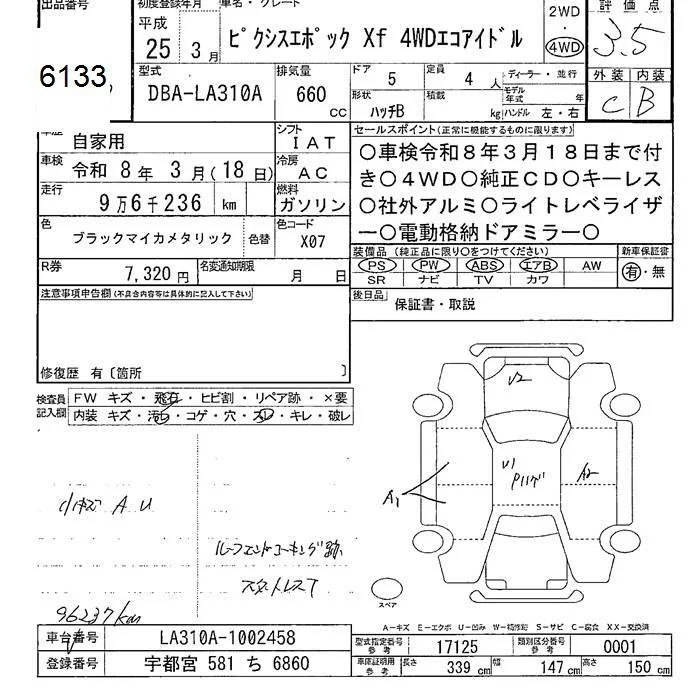 出品番号
6133
初度登録年月
平成
25 3月
車名・グレード
ピクシスエポック Xf 4WDエコアイドル
2WD
・
4WD
評価点
3.5
外装 内装
C B
型式
DBA-LA310A
排気量
660
CC
ドア 5
定員 4人
ディーラー・並行
モデル年式 年
形状
ハッチB
積載
kg
ハンドル 左・右
車歴 自家用
シフト
IAT
車検 令和8年3月(18日)
冷房
AC
走行
9万6千236 km
燃料
ガソリン
色
ブラックマイカメタリック
色替
色コード
X07
R券
7,320円
名変通知期限
月 日
セールスポイント(正常に機能するものに限ります)
○車検令和8年3月18日まで付
き○4WD○純正CD○キーレス
○社外アルミ○ライトレベライザ
ー○電動格納ドアミラー○
装備品 (純正品に限り○をつけてください)
PS PW ABS エアB AW
SR ナビ TV カワ
新車保証書
有・無
後日品
保証書・取説
注意事項申告欄(不具合内容等は具体的に記入して下さい)
修復歴 有〔箇所 〕
検査員
記入欄
FW キズ・飛石・ヒビ割・リペア跡・×要
内装 キズ・汚レ・コゲ・穴・スレ・キレ・破レ
小キズ A U
ルーフエンドコーキング跡
スタットレスT
96237km
U2
U1
Pハゲ
A1
A2
スペア
A-キズ E-エクボ U-凹み W-補修跡 S-サビ C-腐食 XX-交換済
車台番号
LA310A-1002458
登録番号
宇都宮 581 ち 6860
型式指定番号
参考
17125
類別区分番号
参考
0001
車庫証明用
参考
長さ 339 cm
幅 147 cm
高さ 150 cm